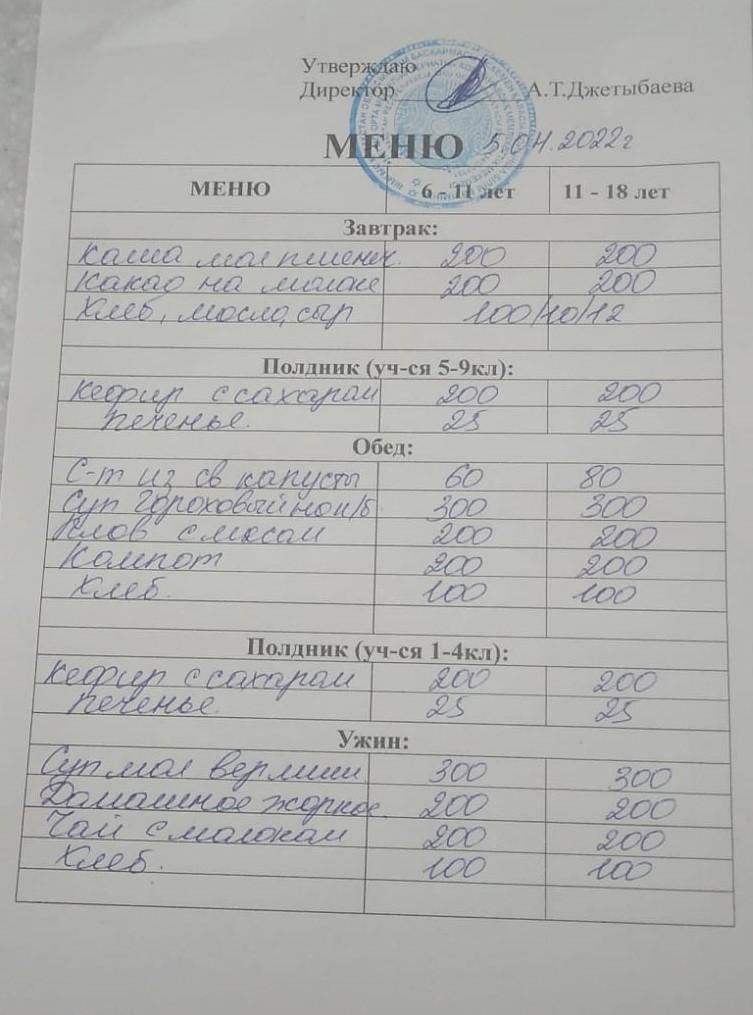 Утверждаю
Директор А.Т.Джетыбаева
МЕНЮ 5.04.2022г
МЕНЮ 6 - 11 лет 11 - 18 лет
Завтрак:
Каша мол пшенич. 200 200
Какао на молоке 200 200
Хлеб, масло, сыр 100/10/12
Полдник (уч-ся 5-9кл):
Кефир с сахаром 200 200
печенье. 25 25
Обед:
С-т из св капусты 60 80
Суп гороховый на к/б 300 300
Плов с мясом 200 200
Компот 200 200
Хлеб. 100 100
Полдник (уч-ся 1-4кл):
Кефир с сахаром 200 200
печенье. 25 25
Ужин:
Суп мол вермиш 300 300
Домашнее жаркое. 200 200
Чай с молоком 200 200
Хлеб. 100 100